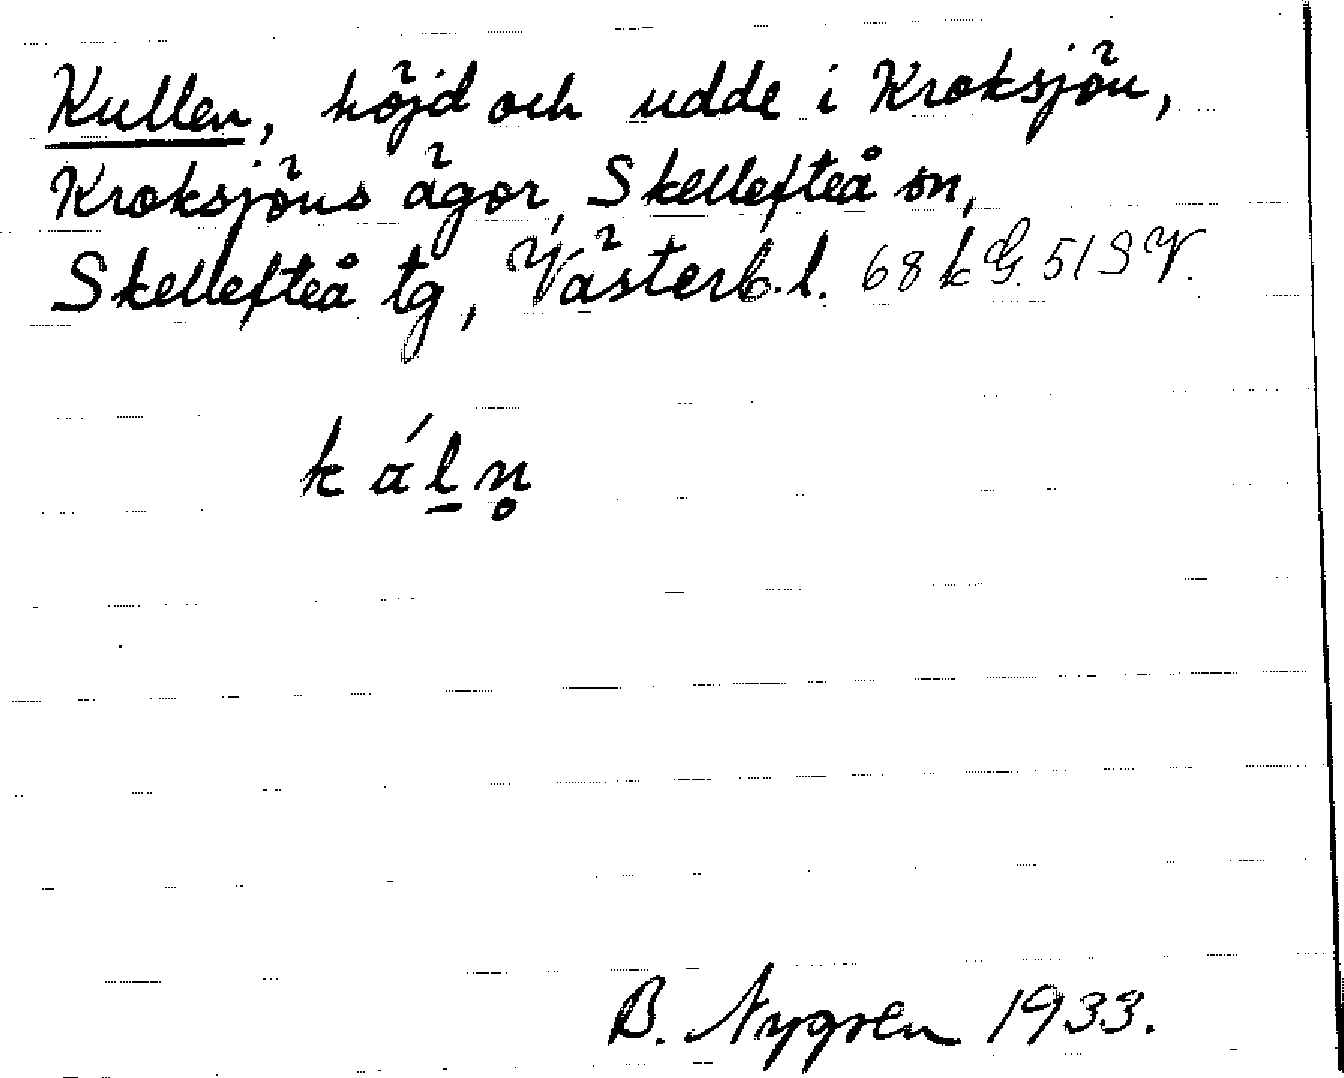 Kullen, höjd och udde i Kroksjön,
Kroksjöns ägor, Skellefteå sn,
Skellefteå tg, Västerb.l. 68 k G. 51 S V.
k á ḻ n̥
B. Nygren 1933.